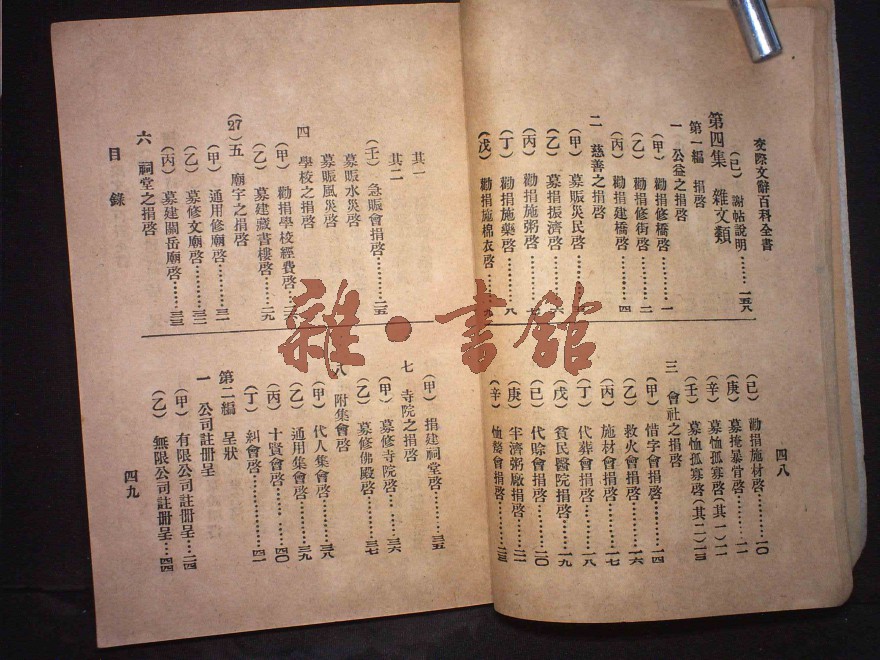 交際文辭百科全書
(已) 謝帖說明………一五八
第四集 雜文類
第一編 捐啓
一 公益之捐啓
(甲) 勸捐修橋啓………一
(乙) 勸捐修街啓………二
(丙) 勸捐建橋啓………四
二 慈善之捐啓
(甲) 募賑災民啓
(乙) 募捐振濟啓………六
(丙) 勸捐施粥啓………七
(丁) 勸捐施藥啓………八
(戊) 勸捐施棉衣啓………九
四八
(已) 勸捐施材啓………一〇
(庚) 募掩暴骨啓………一一
(辛) 募恤孤寡啓(其一)一二
(壬) 募恤孤寡啓(其二)一三
三 會社之捐啓
(甲) 惜字會捐啓………一四
(乙) 救火會捐啓………一六
(丙) 施材會捐啓………一七
(丁) 代葬會捐啓………一八
(戊) 貧民醫院捐啓………一九
(已) 代賒會捐啓………二〇
(庚) 半濟粥廠捐啓………二一
(辛) 恤嫠會捐啓………二三
其一
其二
(壬) 急賑會捐啓………二五
募賑水災啓
募賑風災啓
四 學校之捐啓
(甲) 勸捐學校經費啓
(乙) 募建藏書樓啓………二九
(27) 五 廟宇之捐啓
(甲) 通用修廟啓………三一
(乙) 募修文廟啓………三二
(丙) 募建關岳廟啓………三三
六 祠堂之捐啓
目錄
(甲) 捐建祠堂啓………三五
七 寺院之捐啓
(甲) 募修寺院啓………三六
(乙) 募修佛殿啓………三七
八 附集會啓
(甲) 代人集會啓………三八
(乙) 通用集會啓………三九
(丙) 十賢會啓………四〇
(丁) 糾會啓………四一
第二編 呈狀
一 公司註册呈
(甲) 有限公司註册呈………二四
(乙) 無限公司註册呈………四四
四九
雜·書館